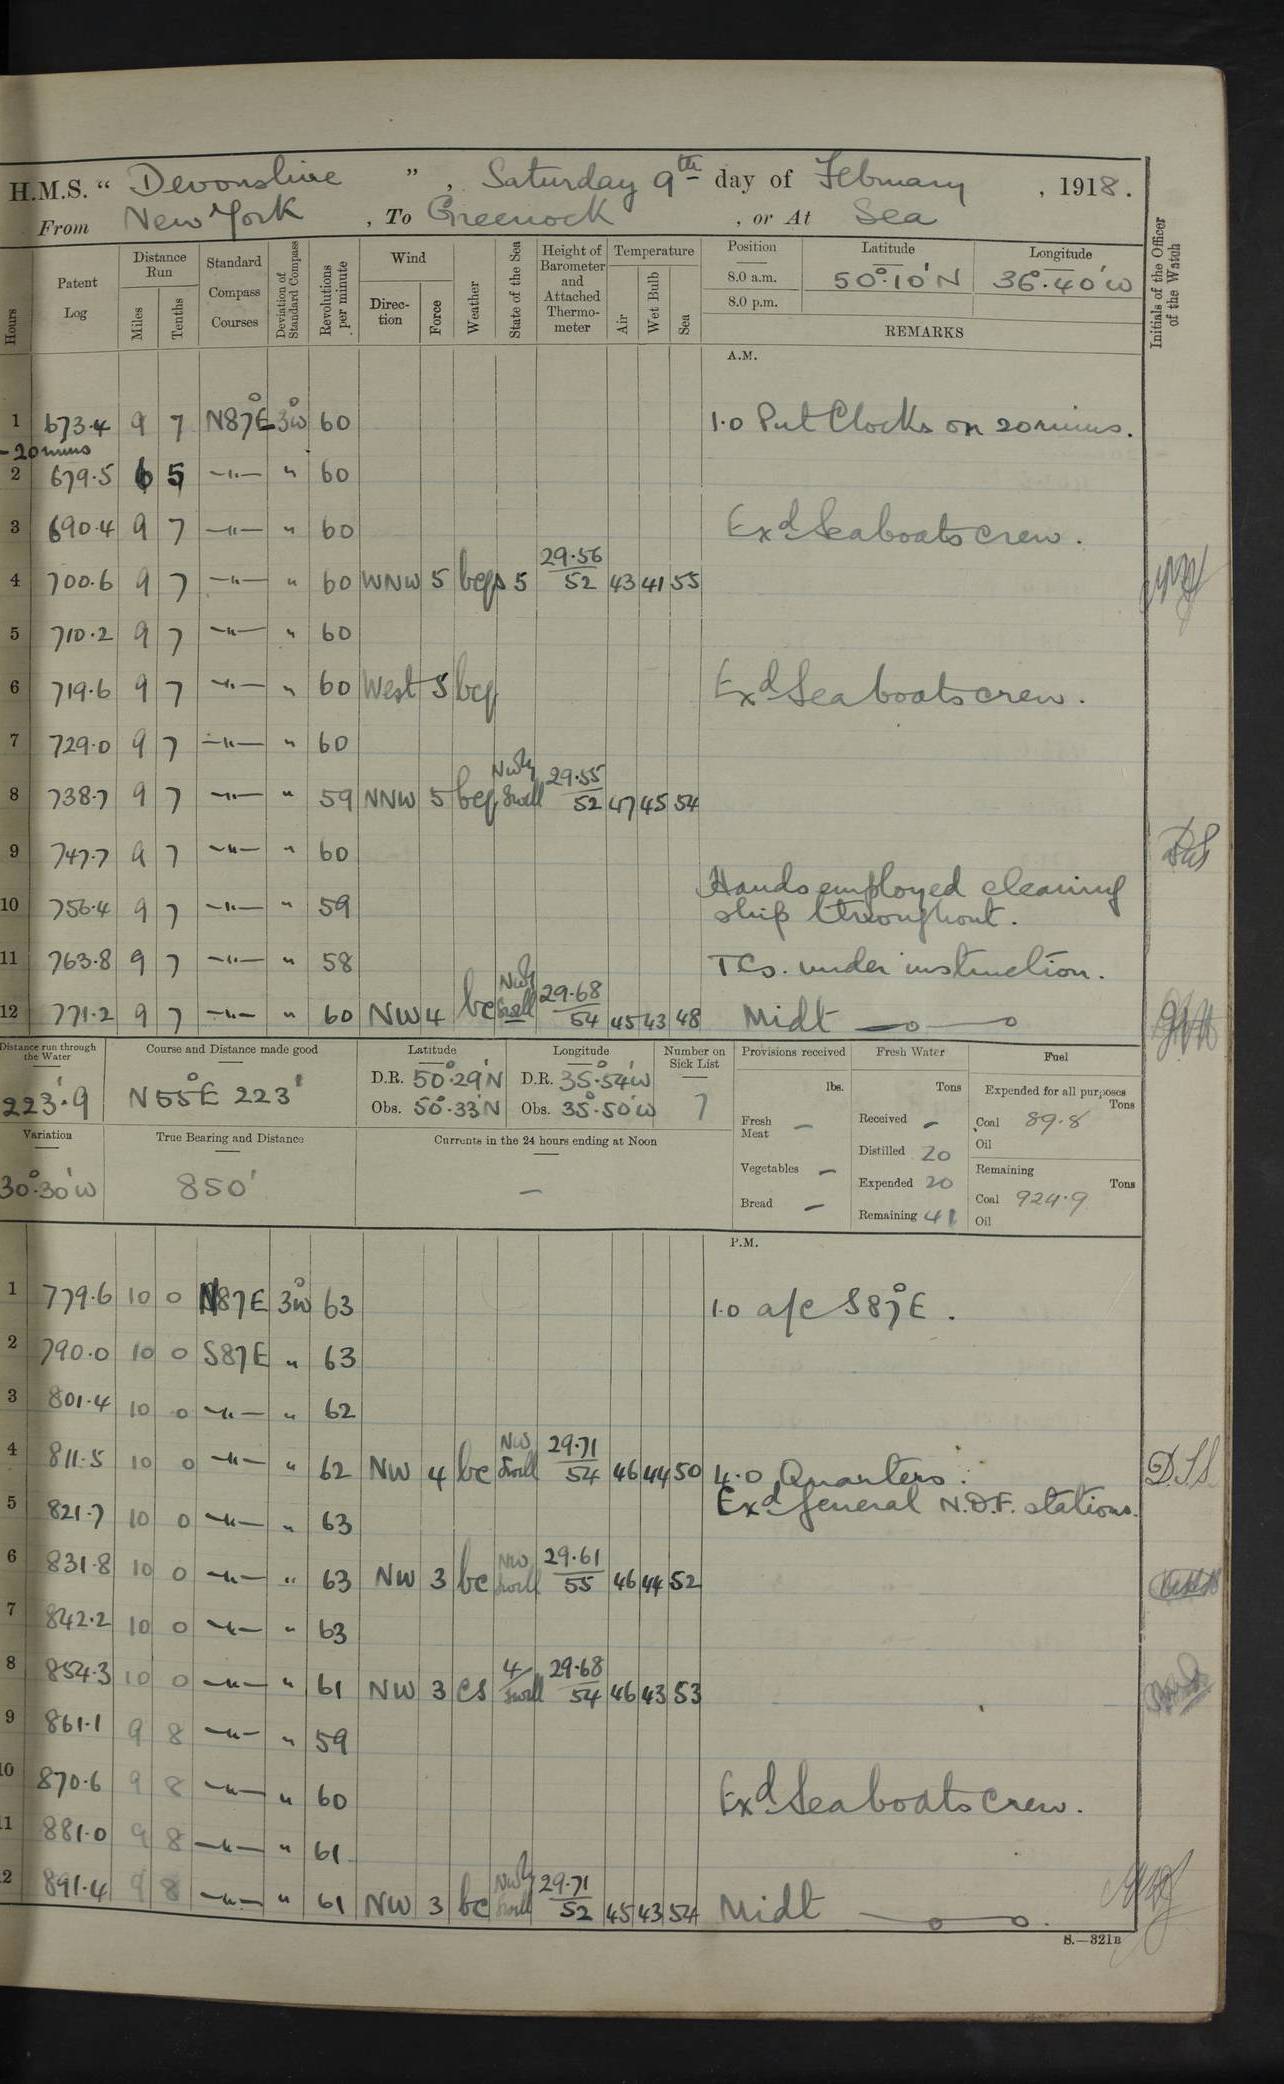 H.M.S. “ Devonshire ” , Saturday 9th day of February , 1918.
From New York , To Greenock , or At Sea
Hours
Patent Log
Distance Run
Miles
Tenths
Standard Compass Courses
Deviation of Standard Compass
Revolutions per minute
Wind
Direction
Force
Weather
State of the Sea
Height of Barometer and Attached Thermometer
Temperature
Air
Wet Bulb
Sea
Position
Latitude
Longitude
8.0 a.m. 50°·10'N 36°·40'W
8.0 p.m.
REMARKS
Initials of the Officer of the Watch
A.M.
1 673·4 9 7 N87°E 3°W 60 1·0 Put Clocks on 20 mins.
-20 mins
2 679·5 6 5 —"— " 60
3 690·4 9 7 —"— " 60 Exd Seaboats crew.
4 700·6 9 7 —"— " 60 WNW 5 bcqs 5 29·56 / 52 43 41 55
5 710·2 9 7 —"— " 60
6 719·6 9 7 —"— " 60 West 5 bcq Exd Seaboats crew.
7 729·0 9 7 —"— " 60
8 738·7 9 7 —"— " 59 NNW 5 bcq NWly Swell 29·55 / 52 47 45 54
9 747·7 9 7 —"— " 60
10 756·4 9 7 —"— " 59 Hands employed cleaning
ship throughout.
11 763·8 9 7 —"— " 58 TCs. under instruction.
12 771·2 9 7 —"— " 60 NW 4 bc NWly Swell 29·68 / 54 45 43 48 Midt
Distance run through the Water
223'·9
Course and Distance made good
N55°E 223'
Latitude
D.R. 50°·29'N
Obs. 50°·33'N
Longitude
D.R. 35°·54'W
Obs. 35°·50'W
Number on Sick List
7
Provisions received
lbs.
Fresh Meat —
Vegetables —
Bread —
Fresh Water
Tons
Received —
Distilled 20
Expended 20
Remaining 41
Fuel
Expended for all purposes
Tons
Coal 89·8
Oil
Remaining
Tons
Coal 924·9
Oil
Variation
30°·30'W
True Bearing and Distance
850'
Currents in the 24 hours ending at Noon
—
P.M.
1 779·6 10 0 N87E 3°W 63 1·0 a/c S87°E.
2 790·0 10 0 S87E " 63
3 801·4 10 0 —"— " 62
4 811·5 10 0 —"— " 62 NW 4 bc NW Swell 29·71 / 54 46 44 50 4·0 Quarters. D.S.S.
Exd General N.D.F. stations.
5 821·7 10 0 —"— " 63
6 831·8 10 0 —"— " 63 NW 3 bc NW Swell 29·61 / 55 46 44 52
7 842·2 10 0 —"— " 63
8 854·3 10 0 —"— " 61 NW 3 cs 4/Swell 29·68 / 54 46 43 53
9 861·1 9 8 —"— " 59
10 870·6 9 8 —"— " 60 Exd Seaboats crew.
11 881·0 9 8 —"— " 61
12 891·4 9 8 —"— " 61 NW 3 bc NWly Swell 29·71 / 52 45 43 54 Midt
S.—321B